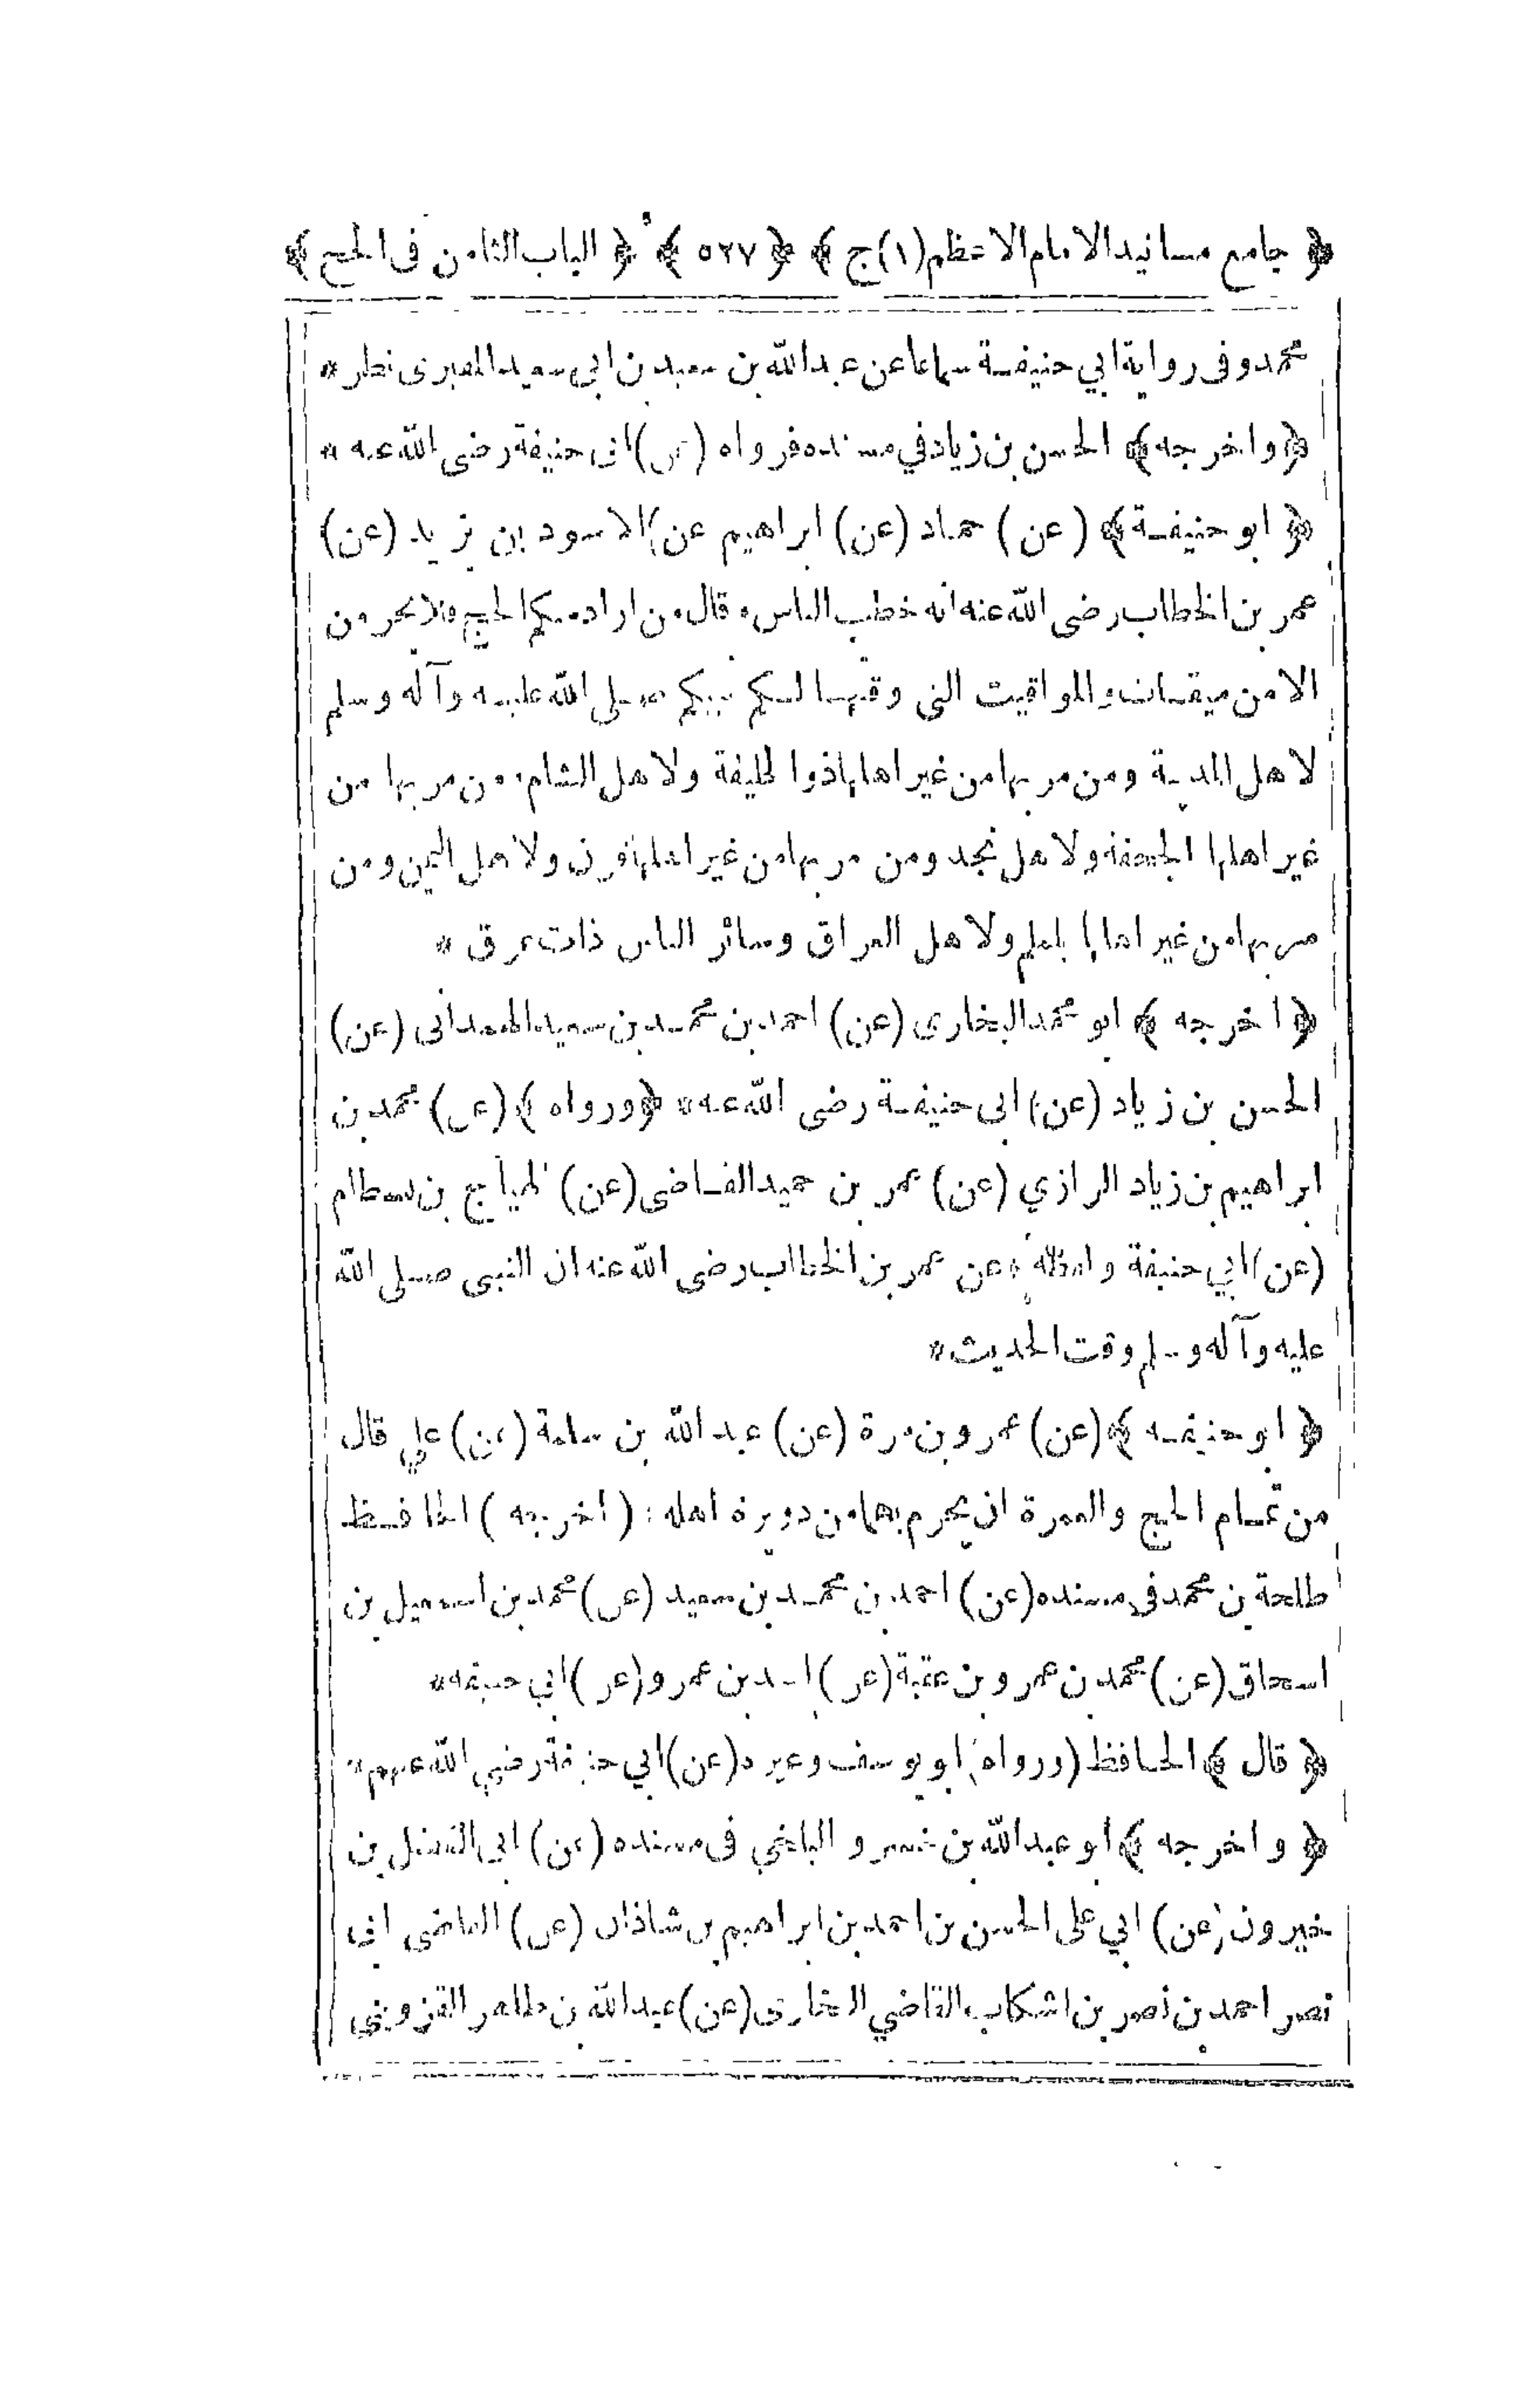 ﴿ جامع مسانيد الامام الاعظم (١) ج ﴾ ﴿ ٥٢٧ ﴾ ﴿ الباب الثامن فى الحج ﴾
محمد وفى رواية ابي حنيفة سماعا عن عبد الله بن سعيد بن ابي سعيد المقبرى نظر *
﴿ واخرجه ﴾ الحسن بن زياد في مسنده فرواه (عن) ابى حنيفة رضى الله عنه *
﴿ ابو حنيفة ﴾ (عن) حماد (عن) ابراهيم عن) الاسود بن يزيد (عن)
عمر بن الخطاب رضى الله عنه انه خطب الناس وقال من اراد منكم الحج فلا يحرمن
الا من ميقات والمواقيت التى وقتها لكم نبيكم صلى الله عليه وآله وسلم
لاهل المدينة ومن مر بها من غير اهلها ذوا لحليفة ولاهل الشام ومن مر بها من
غير اهلها الجحفة ولاهل نجد ومن مر بها من غير اهلها قرن ولاهل اليمن ومن
مر بها من غير اهلها يلملم ولاهل العراق وسائر الناس ذات عرق *
﴿ اخرجه ﴾ ابو محمد البخارى (عن) احمد بن محمد بن سعيد الهمدانى (عن)
الحسن بن زياد (عن) ابى حنيفة رضى الله عنه * ﴿ ورواه ﴾ (عن) محمد بن
ابراهيم بن زياد الرازي (عن) عمر بن حميد القاضى (عن) الهياج بن بسطام
(عن) ابي حنيفة ولفظه عن عمر بن الخطاب رضى الله عنه ان النبى صلى الله
عليه وآله وسلم وقت الحديث *
﴿ ابو حنيفه ﴾ (عن) عمرو بن مرة (عن) عبد الله بن سلمة (عن) علي قال
من تمام الحج والعمرة ان يحرم بهما من دويرة اهله : (اخرجه) الحافظ
طلحة بن محمد فى مسنده (عن) احمد بن محمد بن سعيد (عن) محمد بن اسمعيل بن
اسحاق (عن) محمد بن عمرو بن عقبة (عن) اسد بن عمرو (عن) ابي حنيفه *
﴿ قال ﴾ الحافظ (ورواه) ابو يوسف وغيره (عن) ابي حنيفة رضي الله عنهم *
﴿ واخرجه ﴾ ابو عبد الله بن خسرو البلخي فى مسنده (عن) ابى الفضل بن
خيرون (عن) ابي على الحسن بن احمد بن ابراهيم بن شاذان (عن) القاضى ابى
نصر احمد بن نصر بن اشكاب القاضي البخارى (عن) عبد الله بن طاهر القزوينى